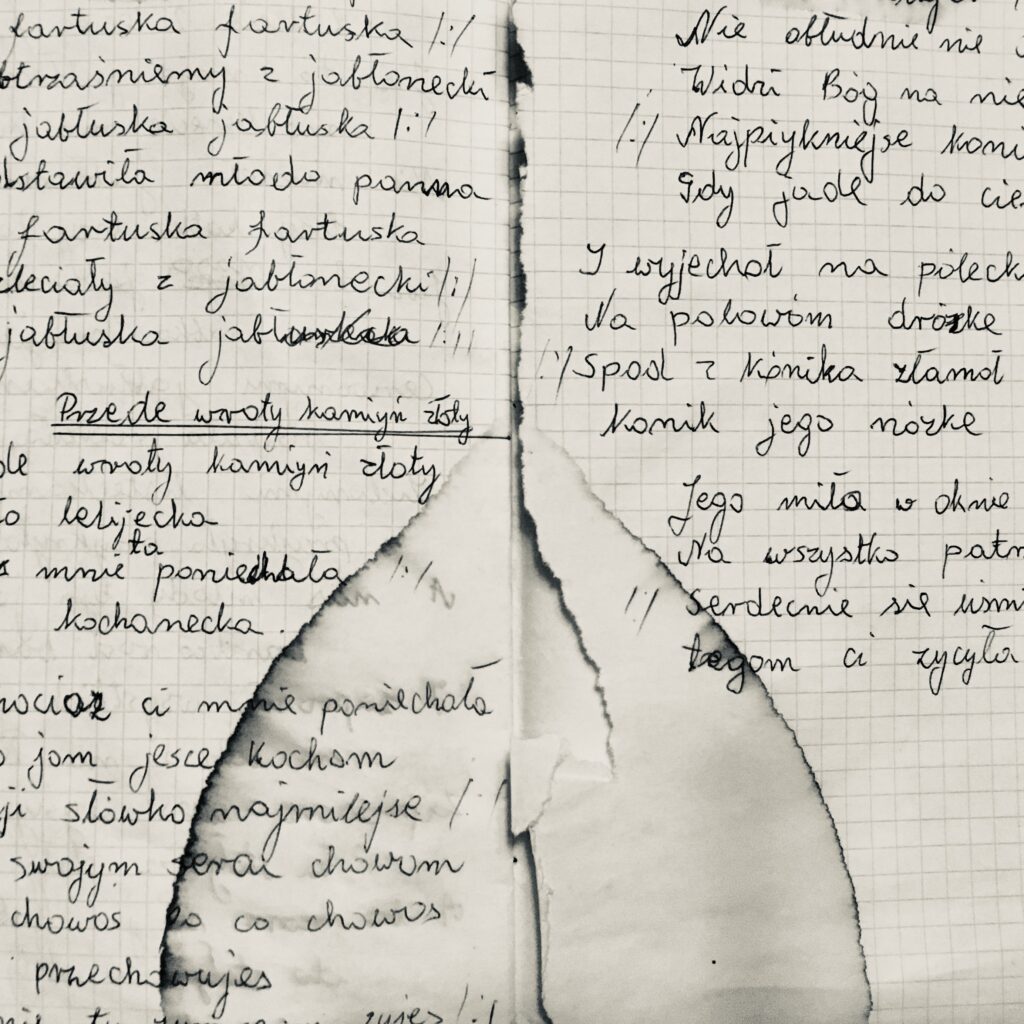 fartuska fartuska /:/
otrzaśniemy z jabłonecki
jabłuska jabłuska /:/
obstawiła młodo panna
fartuska fartuska
zleciały z jabłonecki /:/
jabłuska
Przede wroty kamiyń złoty
wroty kamiyń złoty
lelijecka
ta
mnie poniechała /:/
kochanecka.
ci mnie poniechała
jom jesce kochom
słówko najmilejse /:/
swojym sercu chowom
chowos to co chowos
przechowujes
Nie obłudnie nie
Widzi Bóg na
/:/ Najpiykniejse
Gdy jade do
I wyjechoł na
Na polowóm dróżke
/:/ Spod z kónika złamoł
konik jego nózke
Jego miła w oknie
Na wszystko
/:/ Serdecnie się
tegom ci zycyła